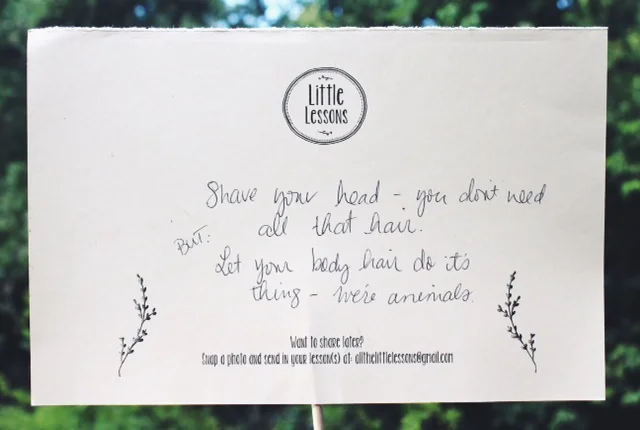 Little
Lessons
Shave your head - you don't need
all that hair.
BUT:
Let your body hair do it's
thing - we're animals.
Want to share later?
Snap a photo and send in your lesson(s) at: allthelittlelessons@gmail.com